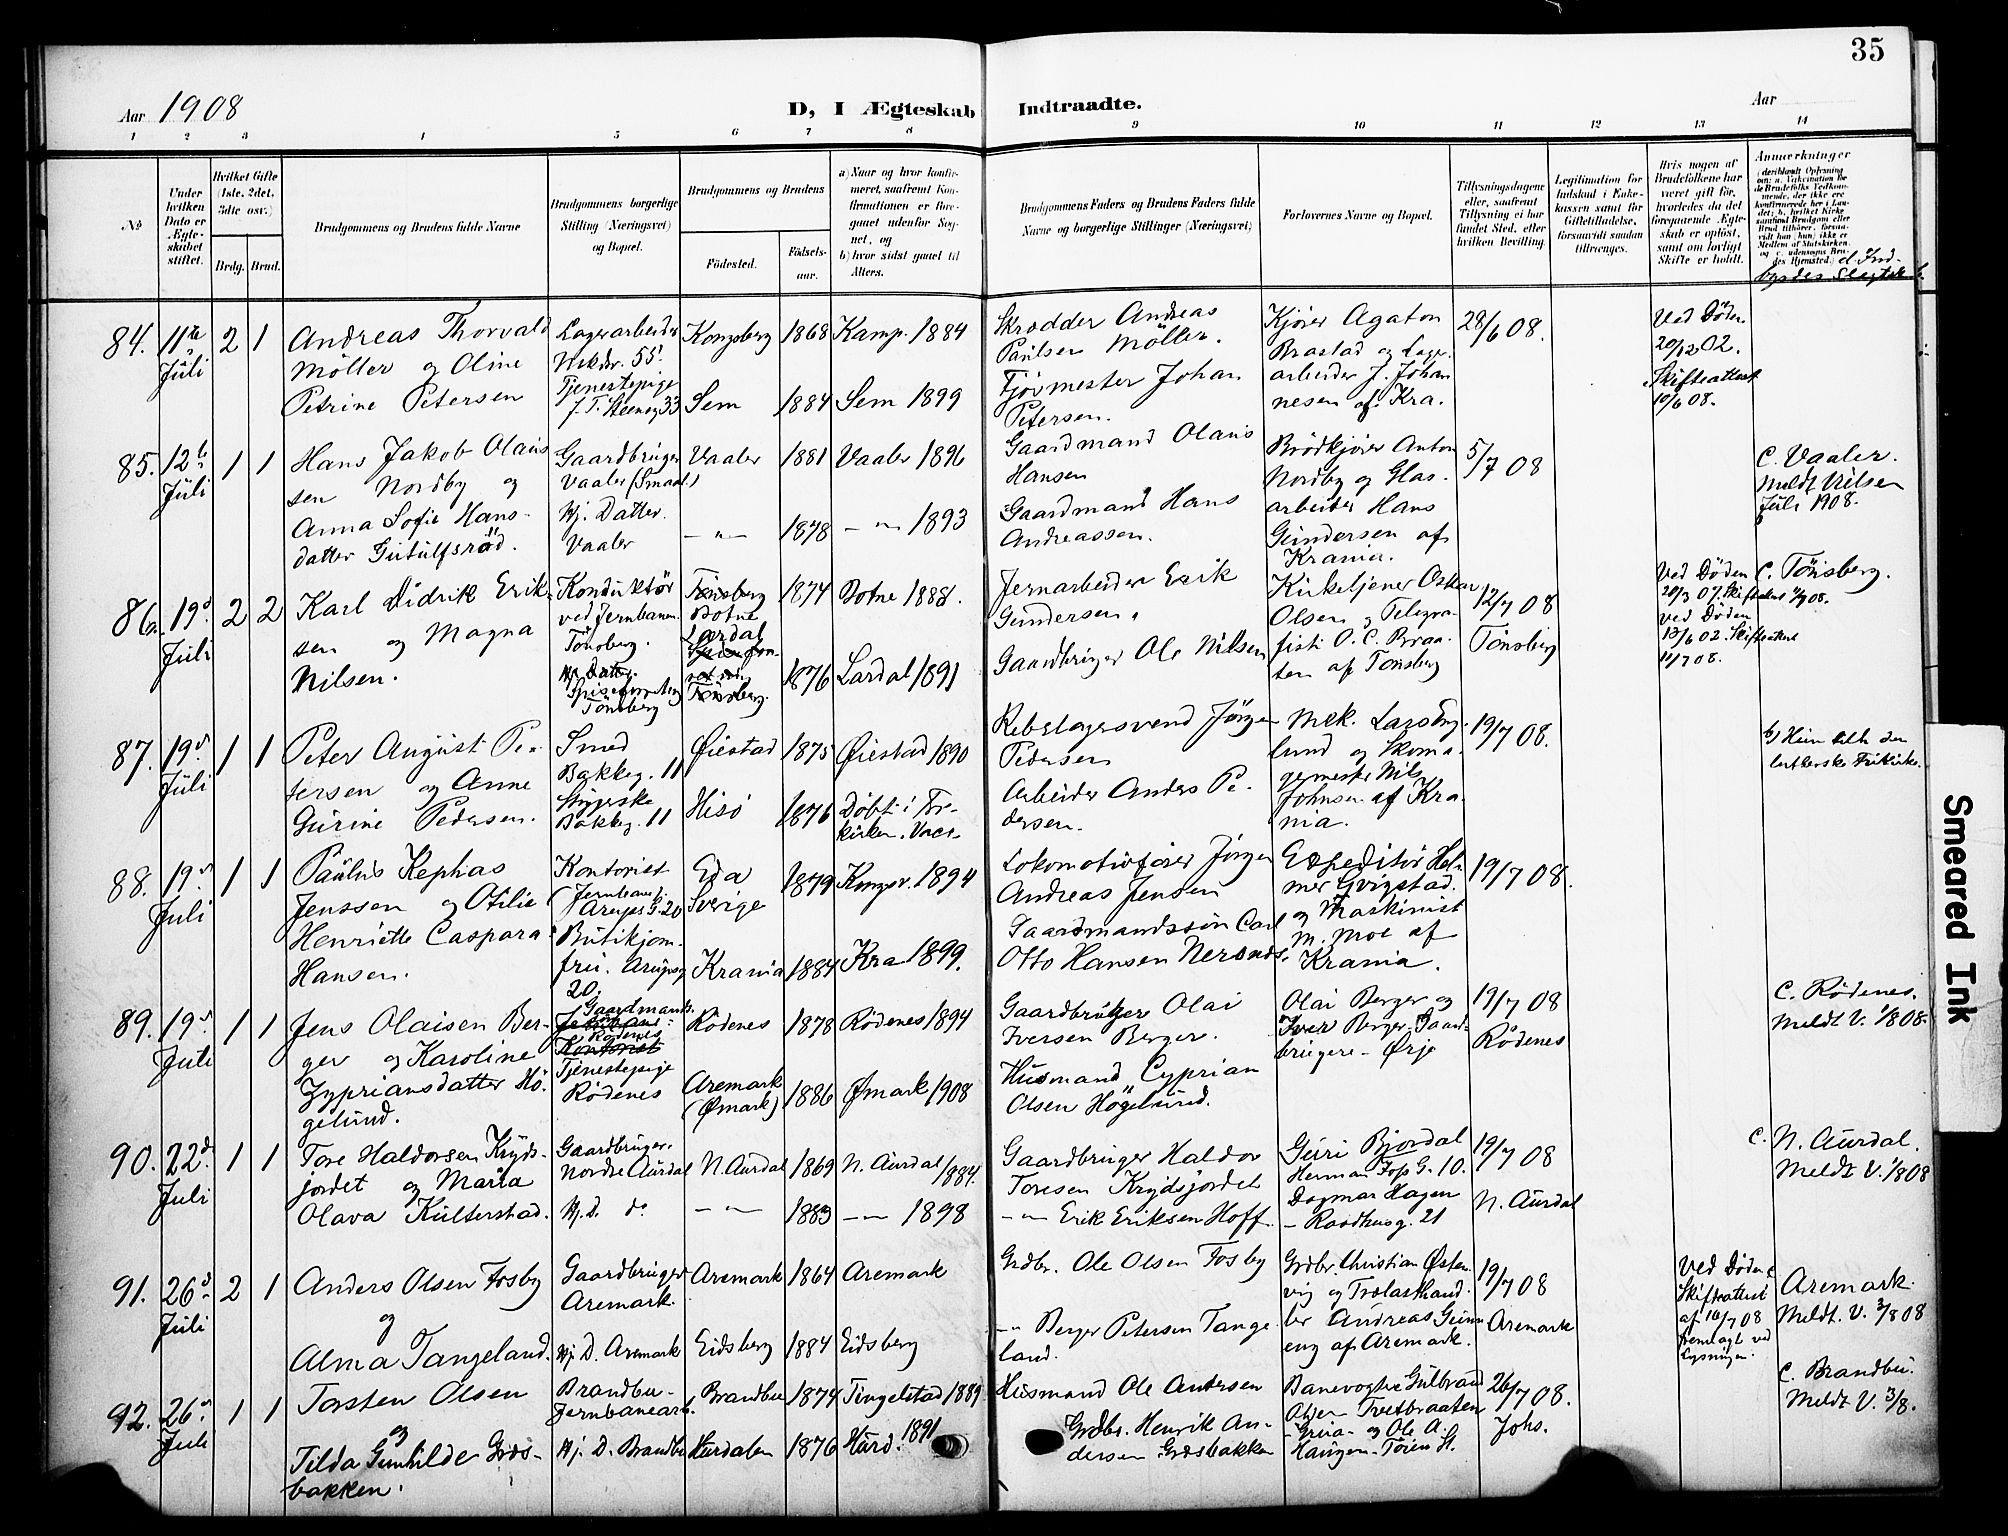 35
Aar 1908
D, I Ægteskab Indtraadte.
Aar
1 2 3 4 5 6 7 8 9 10 11 12 13 14
No
Under hvilken Dato er Ægteskabet stiftet.
Hvilket Gifte (1ste, 2det, 3dte osv.)
Brdg. Brud.
Brudgommens og Brudens fulde Navne
Brudgommens borgerlige Stilling (Næringsvei) og Bopæl.
Brudgommens og Brudens
Fødested. Fødselsaar.
a) Naar og hvor konfirmeret, saafremt Konfirmationen er foregaaet udenfor Sognet, og
b) hvor sidst gaaet til Alters.
Brudgommens Faders og Brudens Faders fulde Navne og borgerlige Stillinger (Næringsvei)
Forlovernes Navne og Bopæl.
Tillysningsdagene eller, saafremt Tillysning ei har fundet Sted, efter hvilken Bevilling.
Legitimation for Indskud i Enkekassen samt for Giftetilladelse, forsaavidt saadan tiltrænges.
Hvis nogen af Brudefolkene har været gift før, hvorledes da det foregaaende Ægteskab er opløst, samt om lovligt Skifte er holdt.
Anmærkninger
84. 11te Juli 2 1
Andreas Thorvald
Möller og Oline
Petrine Petersen
Lagerarbeider
55
Tjenestepige
33
Kongsberg 1868 Kamp. 1884
Sem 1884 Sem 1899
Skrædder Andreas
Paulsen Möller.
Johan
Petersen.
Kjører Agaton
Brastad og Lager-
arbeider J. Johan
nesen af Kra.
28/6 08.
Ved Döden
20/12 02.
Skifteattest
10/6 08.
85. 12te Juli 1 1
Hans Jakob Olaus
sen Nordby og
Anna Sofie Hans-
datter Gutulfsröd.
Gaardbruger
Vaaler (Smaal.)
Hj. Datter.
Vaaler
Vaaler 1881 Vaaler 1896
-"- 1878 -"- 1893
Gaardmand Olaus
Hansen
Gaardmand Hans
Andreassen.
Brödkjører Anton
Nordby og Glas-
arbeider Hans
Gundersen af
Krania.
5/7 08
C. Vaaler.
Meldt Vilsen
Juli 1908.
86. 19d Juli 2 2
Karl Didrik Erik-
sen og Magna
Nilsen.
Konduktör
ved Jernbanen
Tönsberg.
Hj. Datter.
Tönsberg
Tönsberg
Botne
1874 Botne 1888.
Lardal
Tönsberg.
1876 Lardal 1891
Jernarbeider Erik
Gundersen,
Gaardbruger Ole Nilsen
Kirketjener Oskar
Olsen og Telegra-
fist O. C. Braa-
ten af Tönsberg
12/7 08
Tönsberg
Ved Döden
20/3 07. Skifteattest
ved Döden
13/6 02. Skifteattest
11/7 08.
C. Tönsberg.
87. 19d Juli 1 1
Peter August Pe-
tersen og Anne
Gurine Pedersen.
Smed
Bakkeg. 11
Bakkeg. 11
Øiestad 1875 Øiestad 1890
Hisö 1876 Döbt i Fri-
kirken. Vacc.
Rebslagersvend Jörgen
Pedersen
Arbeider Anders Pe-
dersen.
Mek. Lars Eng-
lund og Skoma-
germester Nils
Johnsen af Kra-
nia.
19/7 08.
lutherske Frikirke.
88. 19d Juli 1 1
Paulus Kephas
Jenssen og Otilie
Henriette Caspara
Hansen.
Kontorist
(Jernbane)
Arups G. 20
Butikjom-
fru. Arupsg
20.
Eda
Sverige
1879 Kongsv. 1894
Krania 1884 Kra 1899.
Lokomotivfører Jörgen
Andreas Jensen
Gaardmandssön Carl
Otto Hansen
Expeditör Hel-
mer Gvigstad.
og Maskinist
M. Moe af
Krania.
19/7 08.
89. 19d Juli 1 1
Jens Olaisen Ber-
ger og Karoline
Zypriansdatter Hö-
gelund.
Gaardmands.
Rödenes
Kontorist
Tjenestepige
Rödenes
Rödenes 1878 Rödenes 1894
Aremark
(Ømark)
1886 Ømark 1908
Gaardbruger Olai
Iversen Berger.
Husmand Cyprian
Olsen Högelund.
Olai Berger og
Iver Berger. Gaard-
brugere - Ørje
19/7 08
Rödenes
C. Rödenes.
Meldt V. 1/8 08.
90. 22d Juli 1 1
Tore Haldorsen Kryds-
jordet og Maria
Olava Kulterstad.
Gaardbruger.
Nordre Aurdal
Hj. D. do
N. Aurdal 1869 N. Aurdal 1884.
-"- 1883 -"- 1898
Gaardbruger Haldor
Toresen Krydsjordet
-"- Erik Eriksen Hoff.
Guri Bjordal
Herman Foss G. 10.
Dagmar Hagen
- Raadhusg. 21
19/7 08
N. Aurdal
C. N. Aurdal.
Meldt V. 1/8 08
91. 26d Juli 2 1
Anders Olsen Fosby
og
Alma Tangeland.
Gaardbruger
Aremark.
Hj. D. Aremark
Aremark 1864 Aremark
Eidsberg 1884 Eidsberg
Grdbr. Ole Olsen Fosby
-"- Berger Petersen Tange-
land.
Grdbr. Christian Østen-
vig og Trælasthand-
ler Andreas Gunn
eng af Aremark.
19/7 08
Aremark
Ved Döden
Skifteattest
af 16/7 08
fremlagt ved
Lysningen.
C. Aremark.
Meldt. V. 3/8 08
92. 26d Juli 1 1
Torsten Olsen
og
Tilda Gunhilde Græs-
bakken.
Brandbu-
Jernbanearb.
Hj. D. Brandbu
Brandbu 1874 Tingelstad 1889
Hurdalen 1876 Hurd. 1891
Husmand Ole Andersen
Grdbr. Henrik An-
dersen Græsbakken
Banevogter Gulbrand
Olsen Tvetbraaten
- Grua - og Ole A.
Haugen - Töien St.
26/7 08.
Johs.
C. Brandbu.
Meldt V. 3/8.
Smeared Ink